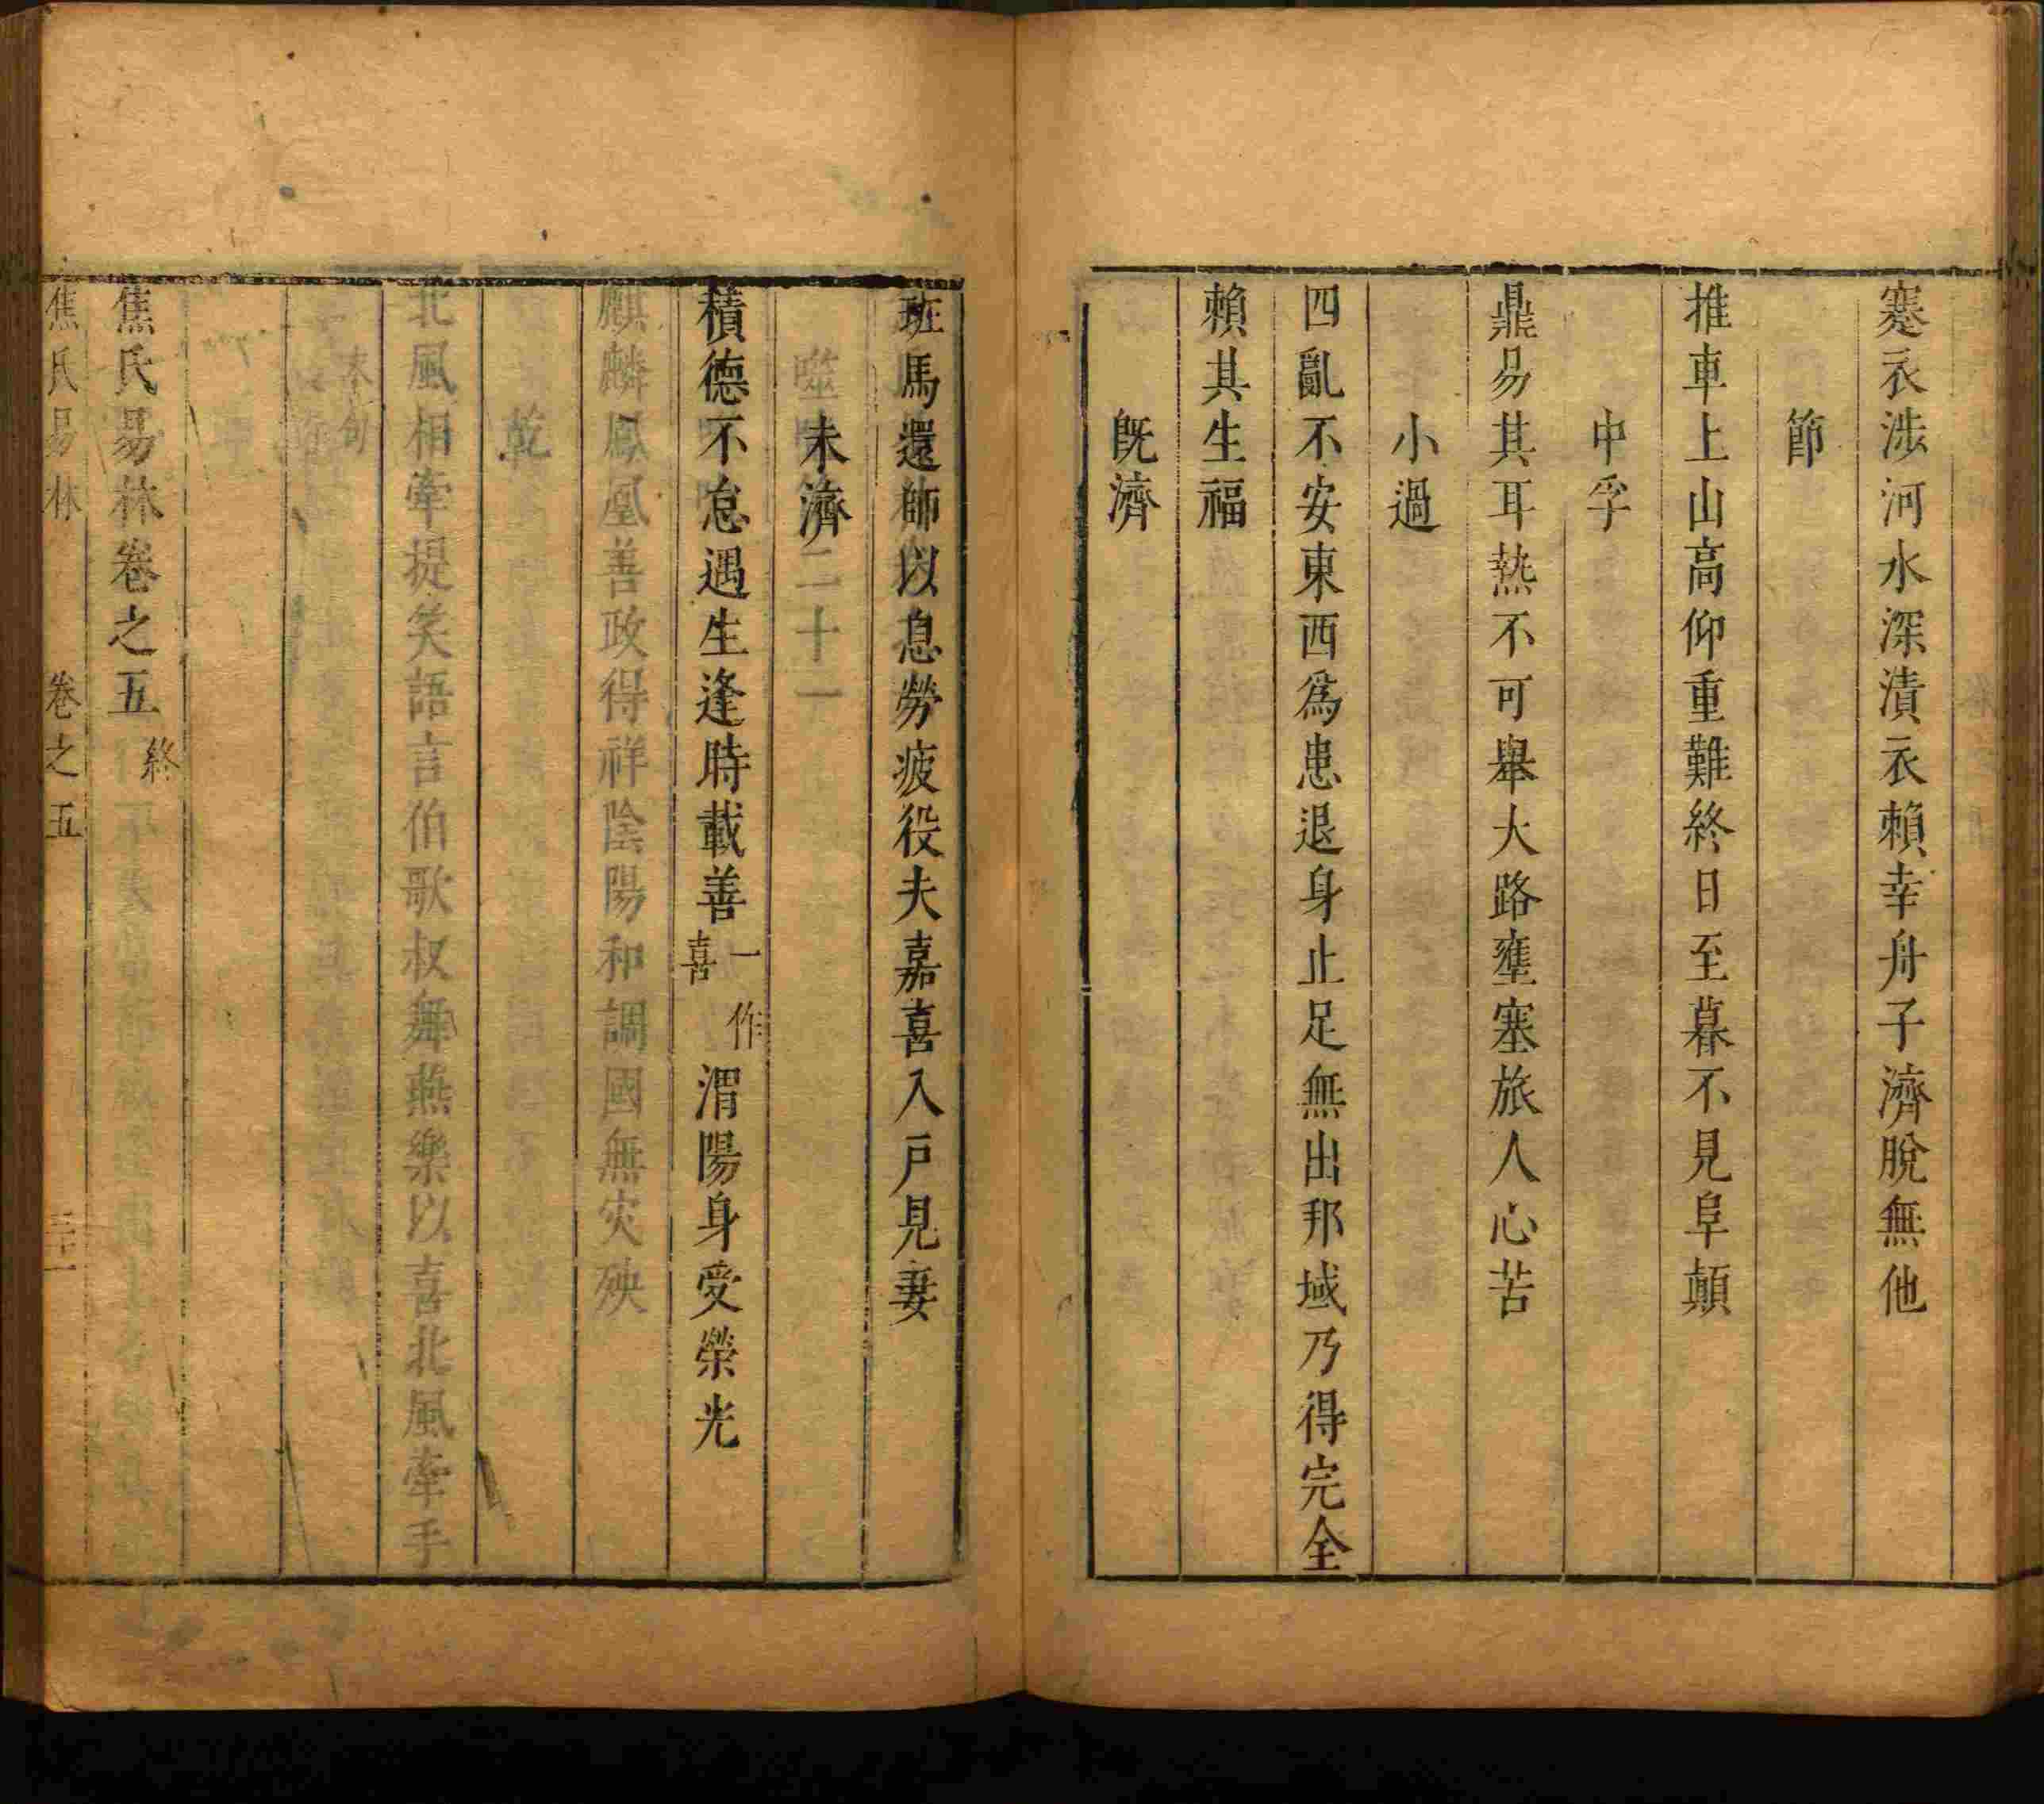 蹇衣涉河水深漬衣賴幸舟子濟脫無他
節
推車上山高仰重難終日至暮不見阜顛
中孚
鼎易其耳熱不可舉大路壅塞旅人心苦
小過
四亂不安東西爲患退身止足無出邦域乃得完全
賴其生福
旣濟
班馬還師以息勞疲役夫嘉喜入戶見妻
未濟
積德不怠遇生逢時載善一作喜渭陽身受榮光
麒麟鳳凰善政得祥陰陽和調國無灾殃
乾
北風相牽提笑語言伯歌叔舞燕樂以喜北風牽手
末句
焦氏易林卷之五終
焦氏易林 卷之五